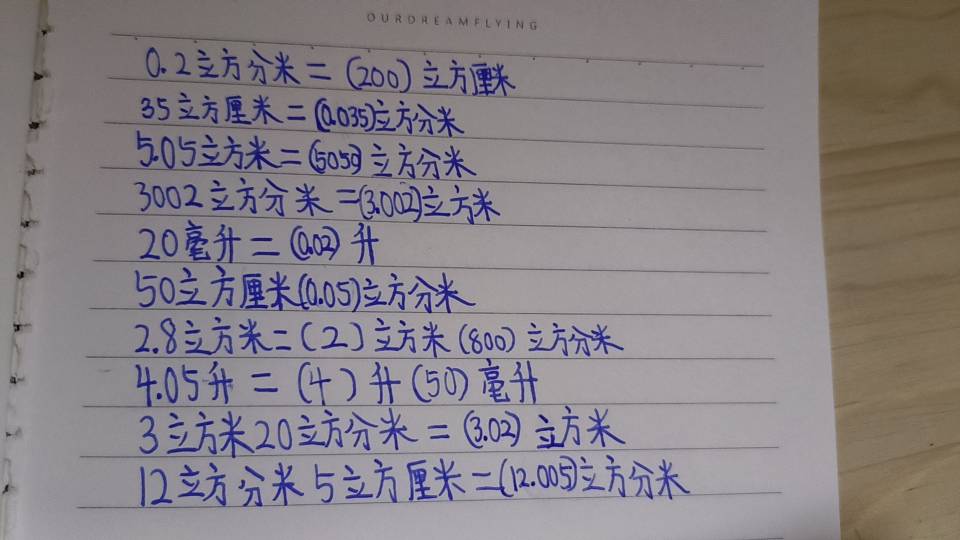 OURDREAMFLYING
0.2立方分米=(200)立方厘米
35立方厘米=(0.035)立方分米
5.05立方米=(5050)立方分米
3002立方分米=(3.002)立方米
20毫升=(0.02)升
50立方厘米(0.05)立方分米
2.8立方米=(2)立方米(800)立方分米
4.05升=(4)升(50)毫升
3立方米20立方分米=(3.02)立方米
12立方分米5立方厘米=(12.005)立方分米